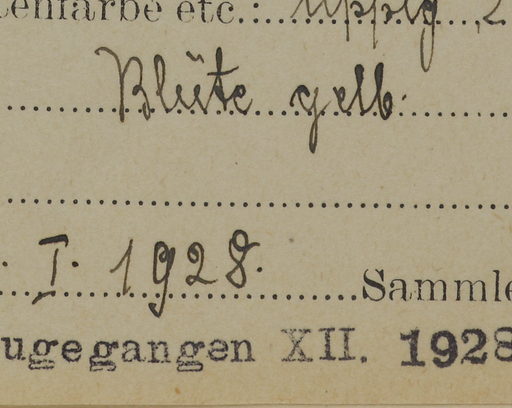 tenfarbe etc.: üppig, 2
Blüte gelb.
. I. 1928. Sammle
ugegangen XII. 1928